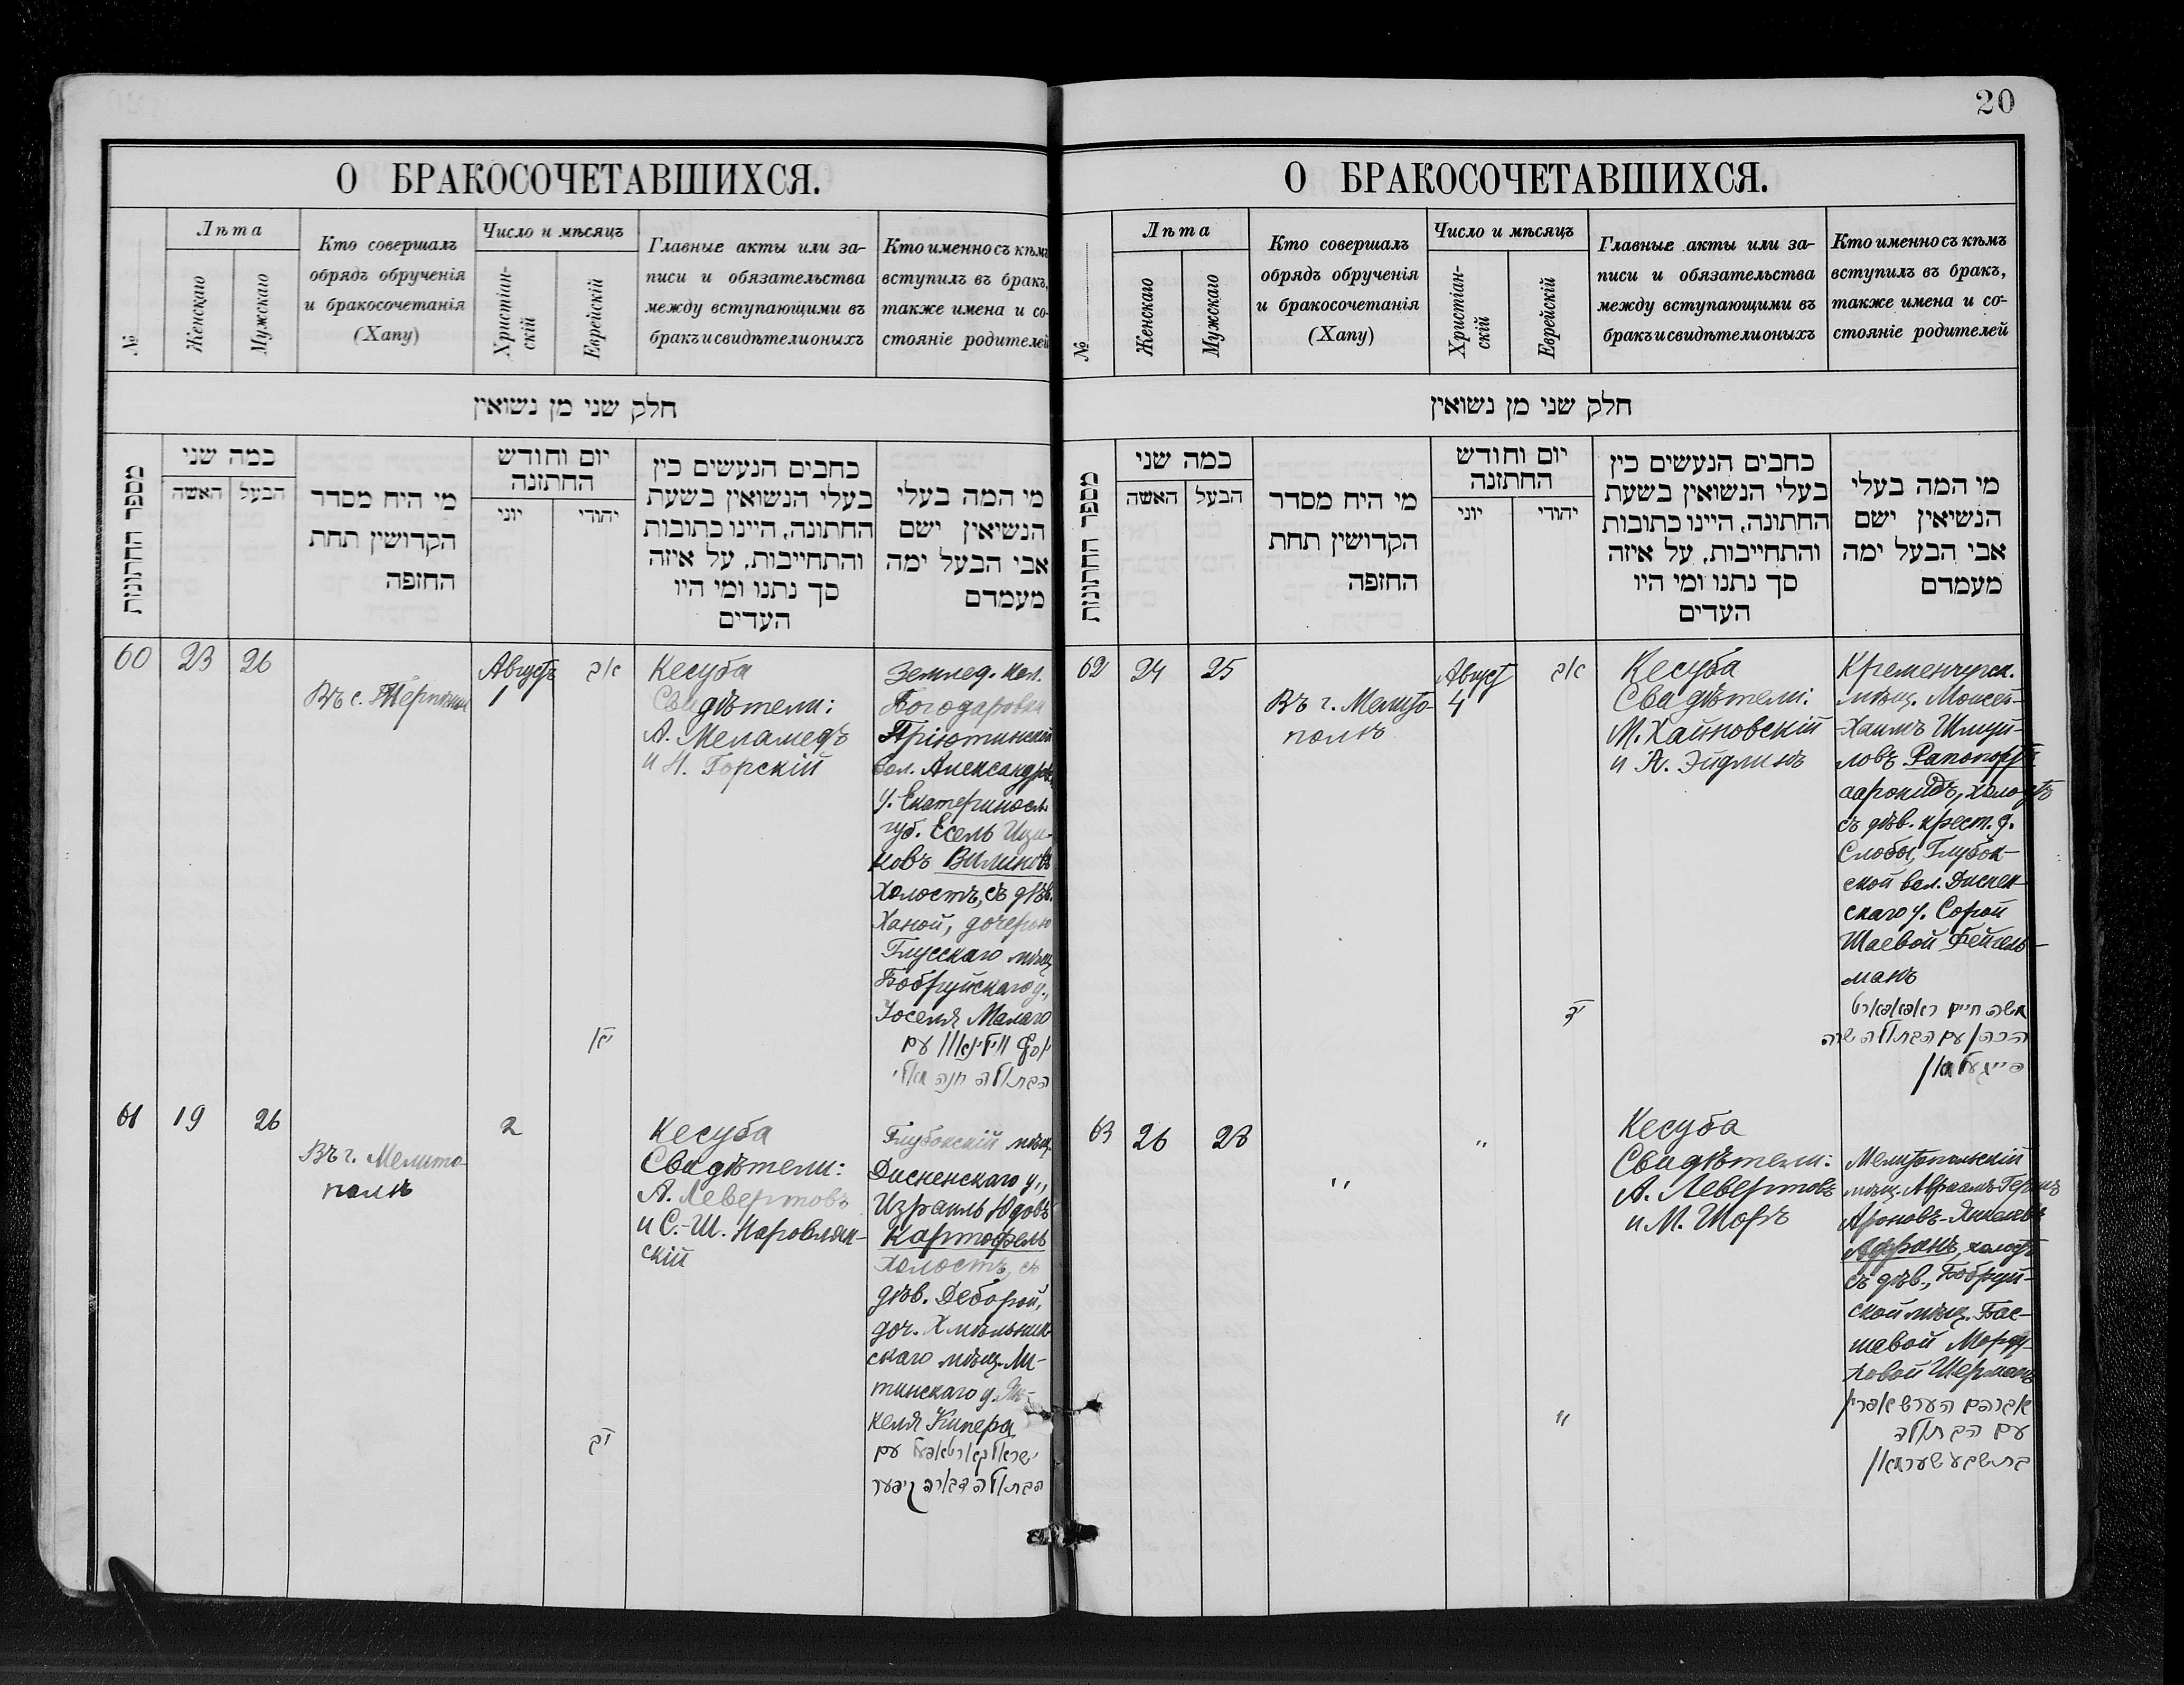 20
О БРАКОСОЧЕТАВШИХСЯ.
№
Лѣта
Женскаго
Мужскаго
Кто совершалъ
обрядъ обрученія
и бракосочетанія
(Хапу)
Число и мѣсяцъ
Христіан-
скій
Еврейскій
Главные акты или за-
писи и обязательства
между вступающими въ
бракъ и свидѣтели оныхъ
Кто именно съ кѣмъ
вступилъ въ бракъ,
также имена и со-
стояніе родителей
חלק שני מן נשואין
מספר החתונות
כמה שני
האשה
הבעל
מי היח מסדר
הקדושין תחת
החזפה
יום וחודש
החתזנה
יוני
יהודי
כחבים הנעשים כין
בעלי הנשואין בשעת
החתונה, היינו כתובות
והתחייבות, על איזה
סך נתנו ומי היו
העדים
מי המה בעלי
הנשיאין ישם
אבי הבעל ימה
מעמדם
60
23
26
Въ с.
Августъ
1
אב
יא
Кесуба
Свидѣтели:
А. Меламедъ
и Н. Горскій
Землед. кол.
Богодаровка
Пріютинской
вол. Александров
у. Екатериносл.
губ. Есель Ица-
ковъ Вилиновъ
холостъ, съ дѣв.
Ханой, дочерью
Глусскаго мѣщ.
Бобруйскаго у.,
Іоселя Малаго
עם
הבתולה חנה מאלי
61
19
26
Въ г. Мелито-
полѣ
2
יב
Кесуба
Свидѣтели:
А. Левертовъ
и С.-Ш. Наровлян-
скій
Глубокскій мѣщ.
Дисненскаго у.,
Израиль Юдовъ
Картофель
холостъ, съ
дѣв. Деборой,
доч. Хмѣльник-
скаго мѣщ. Ли-
тинскаго у.
келя Кипера
ישראל קארטאפעל עם
הבתולה דבורה קיפער
О БРАКОСОЧЕТАВШИХСЯ.
№
Лѣта
Женскаго
Мужскаго
Кто совершалъ
обрядъ обрученія
и бракосочетанія
(Хапу)
Число и мѣсяцъ
Христіан-
скій
Еврейскій
Главные акты или за-
писи и обязательства
между вступающими въ
бракъ и свидѣтели оныхъ
Кто именно съ кѣмъ
вступилъ въ бракъ,
также имена и со-
стояніе родителей
חלק שני מן נשואין
מספר החתונות
כמה שני
האשה
הבעל
מי היח מסדר
הקדושין תחת
החזפה
יום וחודש
החתזנה
יוני
יהודי
כחבים הנעשים כין
בעלי הנשואין בשעת
החתונה, היינו כתובות
והתחייבות, על איזה
סך נתנו ומי היו
העדים
מי המה בעלי
הנשיאין ישם
אבי הבעל ימה
מעמדם
62
24
25
Въ г. Мелито-
полѣ
Август
4
אב
יד
Кесуба
Свидѣтели:
М. Хайновскій
и А. Эйдлинъ
Кременчугск.
мѣщ. Моисей-
-Хаимъ Шмуй-
ловъ Рапопортъ
ааронидъ, холостъ
съ дѣв. крест. д.
Слобы, Глубок-
ской вол. Диснен-
скаго у. Сорой
Шаевой Фейгель-
манъ
משה חיים ראפאפארט
הכהן עם הבתולה שרה
פייגעלמאן
63
26
28
"
"
"
Кесуба
Свидѣтели:
А. Левертовъ
и М. Шоръ
Мелитопольскій
мѣщ. Авраамъ-Гершъ
Ароновъ-Янкелевъ
Афранъ, холостъ
съ дѣв., Бобруй-
ской мѣщ. Бас-
шевой Морду-
ховой Шерманъ
אברהם הערש אפרין
עם הבתולה
בתשבע שערמאן